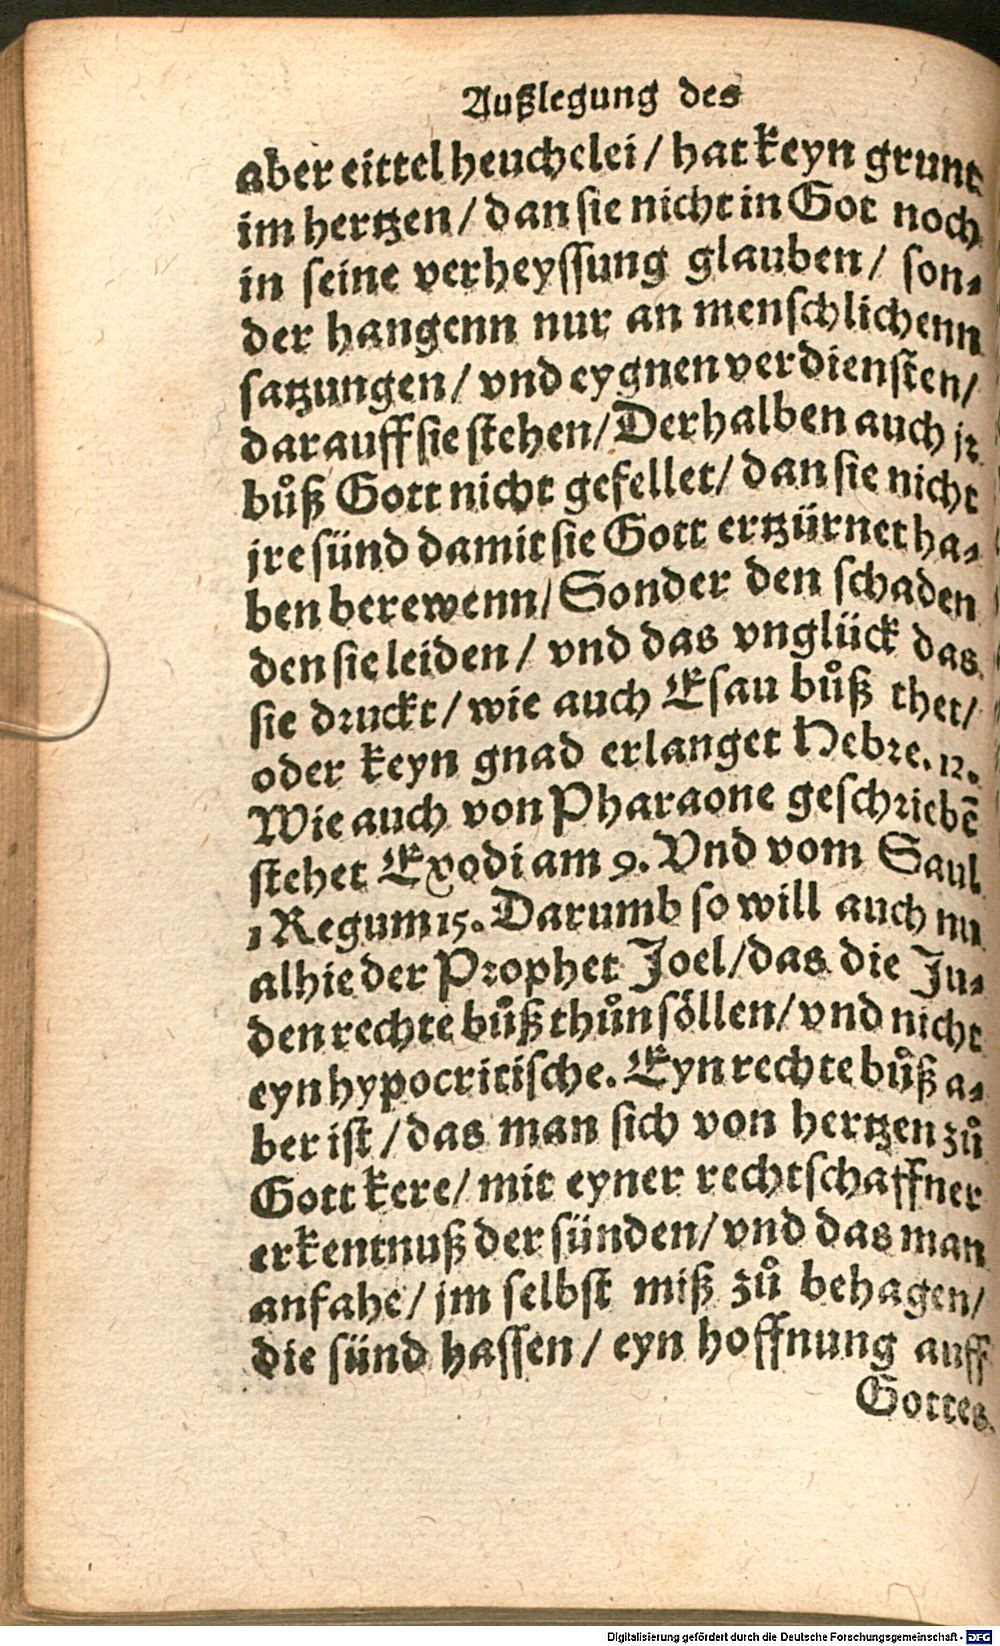 Außlegung des
aber eittel heuchelei / hat keyn grunt
im hertzen / dan sie nicht in Got noch
in seine verheyssung glauben / son⸗
der hangenn nur an menschlichenn
satzungen / vnd eygnen verdiensten /
darauff sie stehen / Derhalben auch jr
bůß Gott nicht gefellet / dan sie nicht
jre sünd damit sie Gott ertzürnet ha⸗
ben berewenn / Sonder den schaden
den sie leiden / vnd das vnglück das
sie druckt / wie auch Esau bůß thet /
oder keyn gnad erlanget Hebre. 12.
Wie auch von Pharaone geschriebē
stehet Exodi am 9. Vnd vom Saul
1 Regum 15. Darumb so will auch nu
alhie der Prophet Joel / das die Ju⸗
den rechte bůß thůn söllen / vnd nicht
eyn hypocritische. Eyn rechte bůß a⸗
ber ist / das man sich von hertzen zů
Gott kere / mit eyner rechtschaffner
erkentnuß der sünden / vnd das man
anfahe / jm selbst miß zů behagen /
die sünd hassen / eyn hoffnung auff
Gottes
Digitalisierung gefördert durch die Deutsche Forschungsgemeinschaft - DFG